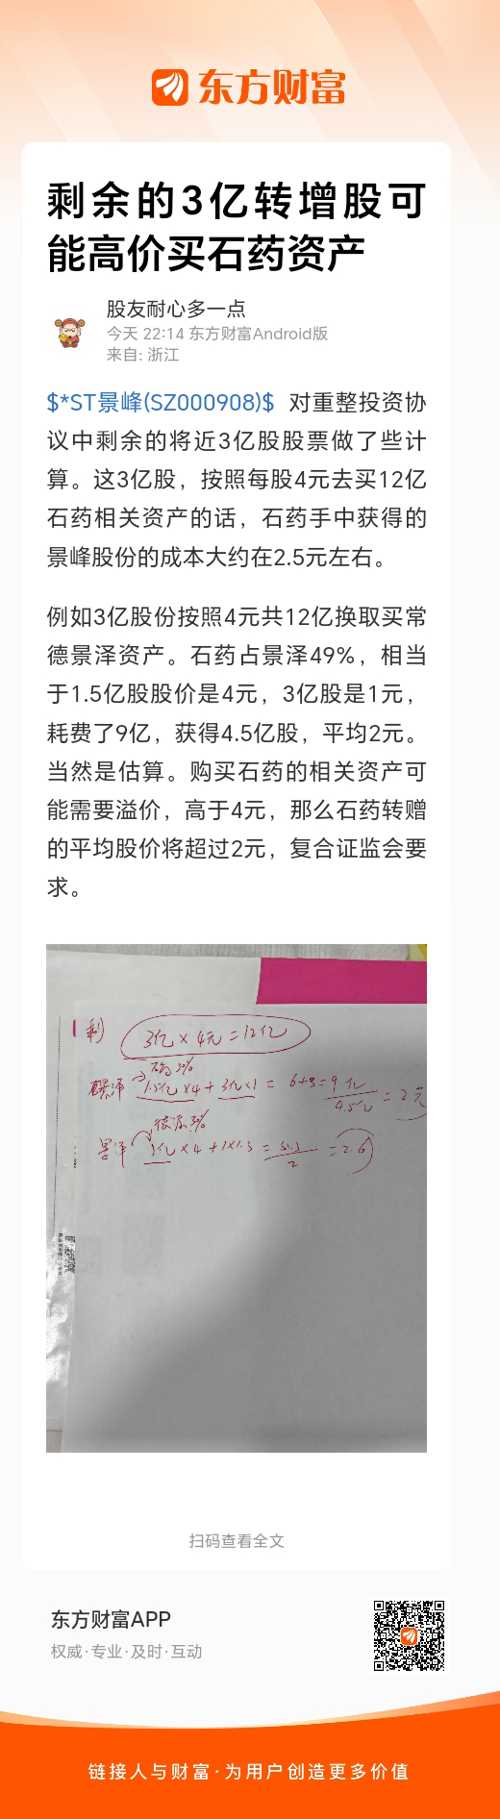 东方财富
剩余的3亿转增股可
能高价买石药资产
股友耐心多一点
今天 22:14 东方财富Android版
来自: 浙江
$*ST景峰(SZ000908)$ 对重整投资协
议中剩余的将近3亿股股票做了些计
算。这3亿股，按照每股4元去买12亿
石药相关资产的话，石药手中获得的
景峰股份的成本大约在2.5元左右。
例如3亿股份按照4元共12亿换取买常
德景泽资产。石药占景泽49%，相当
于1.5亿股股价是4元，3亿股是1元，
耗费了9亿，获得4.5亿股，平均2元。
当然是估算。购买石药的相关资产可
能需要溢价，高于4元，那么石药转赠
的平均股价将超过2元，复合证监会要
求。
剩 3亿×4元=12亿
1.5亿×4+3亿×1=6+3=9亿
4.5亿
=2元
景泽 3亿×4+1×1.3=
2
=2.6
扫码查看全文
东方财富APP
权威·专业·及时·互动
链接人与财富·为用户创造更多价值